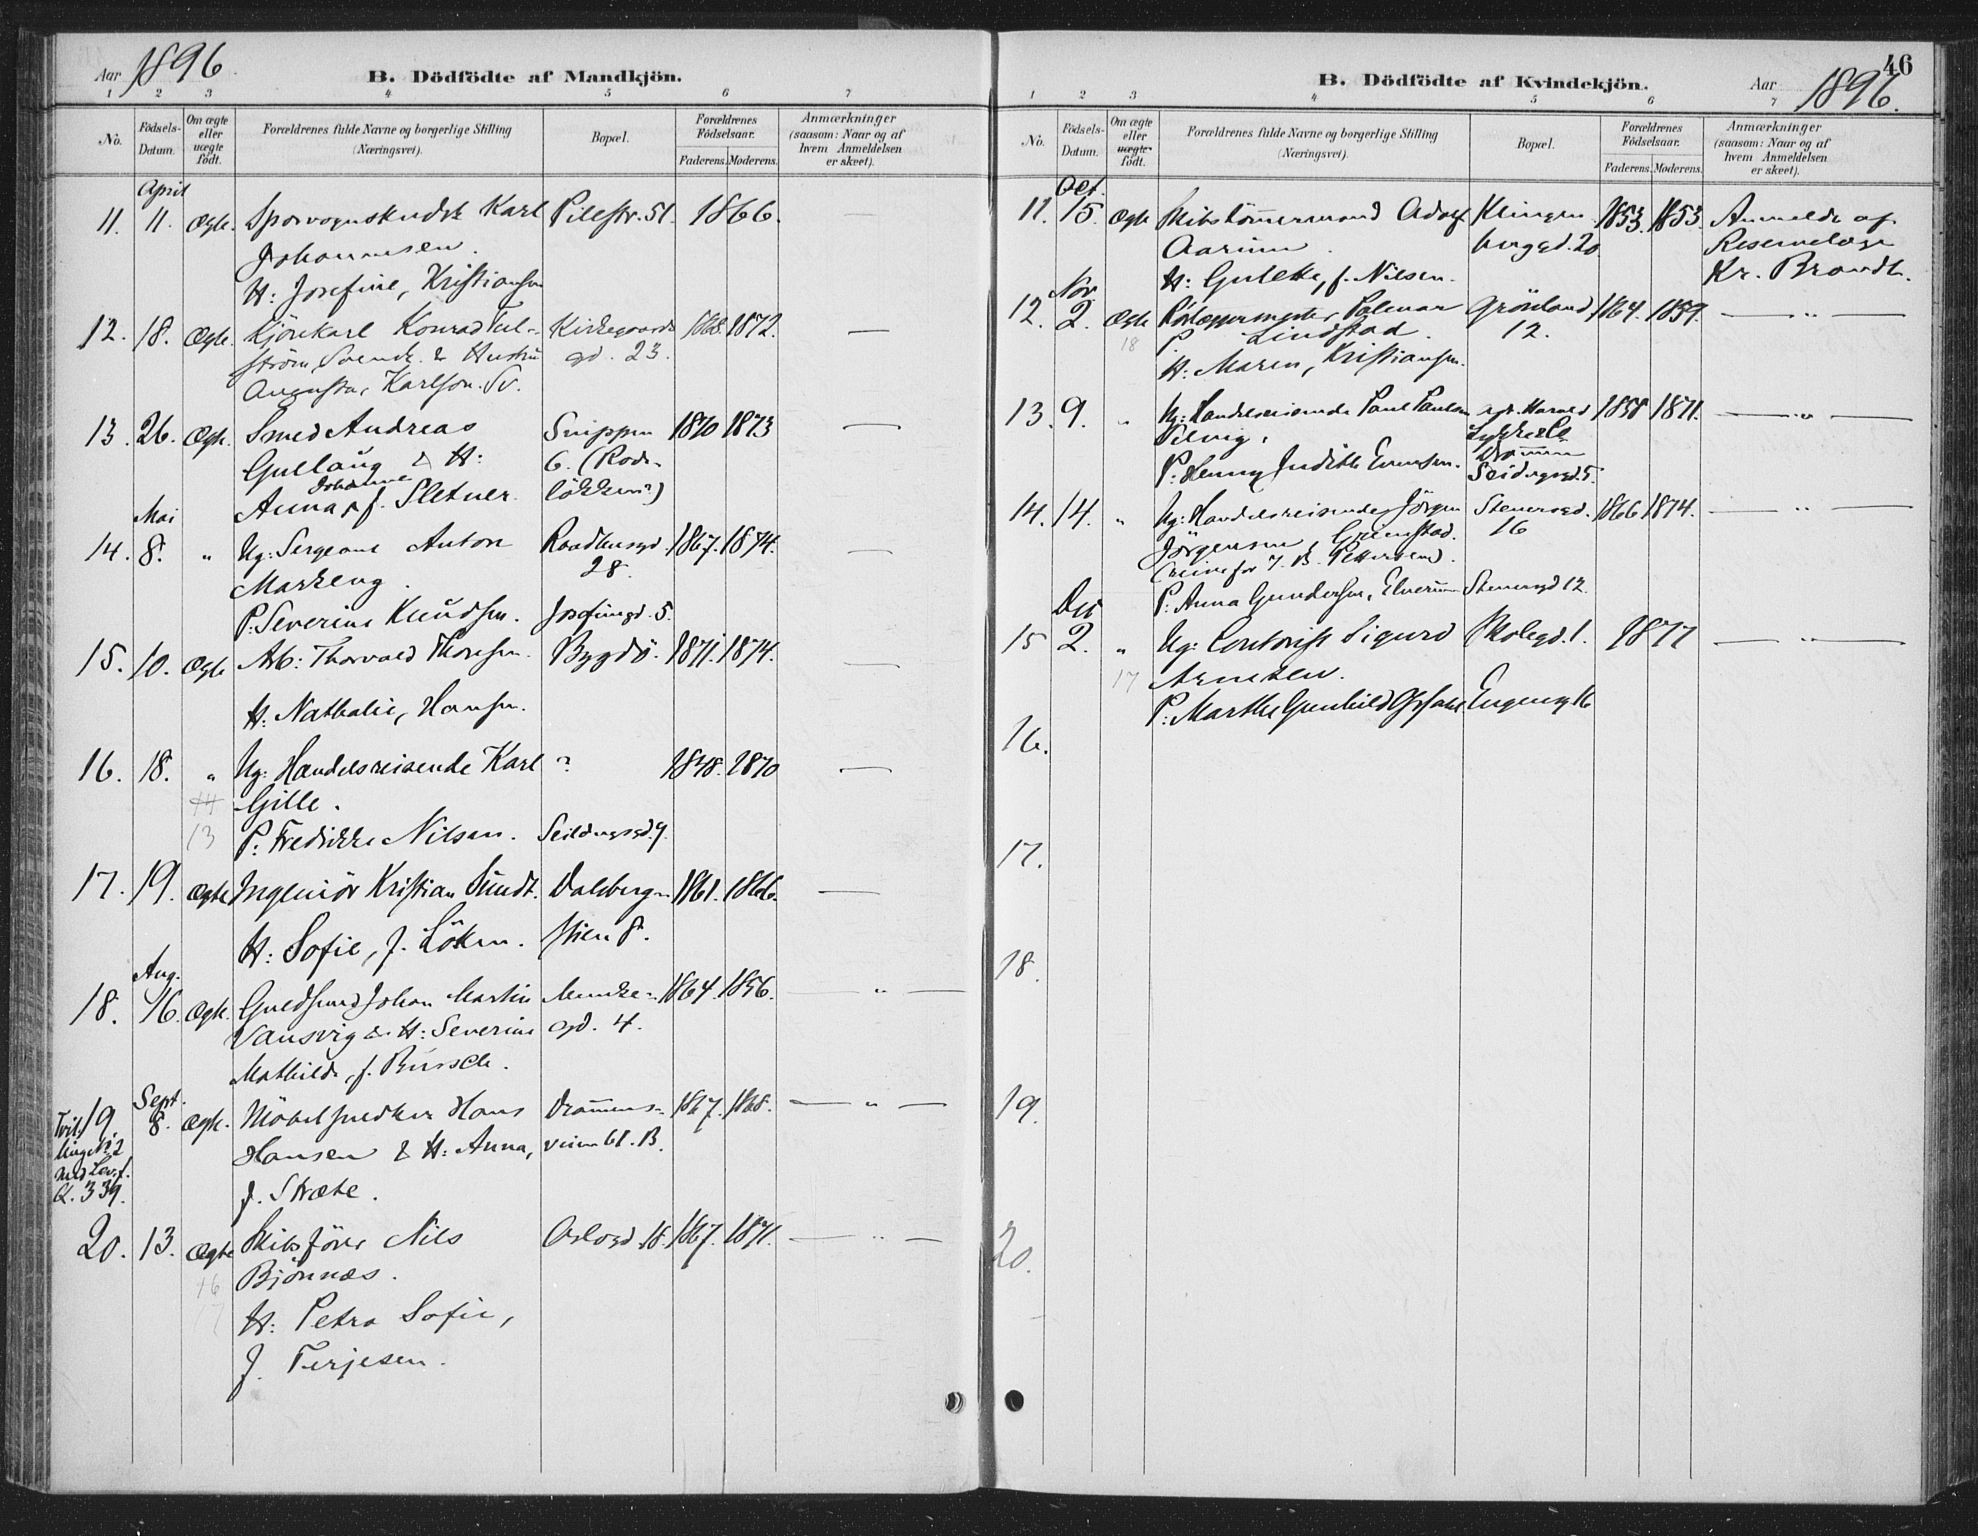 Aar 1896.
B. Dödfödte af Mandkjön.
1 2 3 4 5 6 7
No.
Födsels-Datum.
Om ægte eller uægte födt.
Forældrenes fulde Navne og borgerlige Stilling
(Næringsvei).
Bopæl.
Forældrenes Födselsaar.
Faderens. Moderens.
Anmærkninger
(saasom: Naar og af
hvem Anmeldelsen
er skeet).
April
11. 11. Ægte. Sporvognskudsk Karl Pilestr. 51. 1866. —
Johannesen.
H: Josefine, Kristiansen
12. 18. Ægte. Konrad Kirkegaards 1868. 1872. —
ström, Svensk. & Hustru gd. 23.
Augusta, Karlson. Sv.
13. 26. Ægte. Smed Andreas Snippen 1870 1873 —
Gullaug & H: 6. (Rode-
Johanne
Anna, f. Sletner. lökken?)
Mai
14. 8. " Ug: Sergeant Anton Raadhusgd. 1867. 1874. —
Markeng. 28.
P: Severine Knudsen. Josefinegd. 5.
15. 10. Ægte Arb: Thorvald Thoresen. Bygdö. 1871. 1874. —
H: Nathalie, Hansen.
16. 18. " Ug: Handelsreisende Karl ? 1848. 1870 —
14 Gille.
13 P: Fredrikke Nilsen. Seildugsgd. 9.
17. 19. Ægte Ingeniör Kristian Sundt. Dalsbergs- 1861. 1866. —
H: Sofie, f. Löken. stien 8.
Aug.
18. 16. Ægte. Guldsmed Johan Martin Munke- 1864. 1856. — " —
Vansvig & H: Severine gd. 4.
Mathilde, f. Büssch.
Sept.
19. 8. Ægte. Möbelsnedker Hans Drammens- 1867. 1868. — " —
Tvil-
ling No 2
med Lev. f.
K. 339.
Hansen & H: Anna, veien 61. B.
f. Stræte.
20. 13. Ægte Skibsförer Nils Oslogd. 18. 1867. 1871. — " —
16 Bjönnæs.
17 H: Petra Sofie,
f. Terjesen.
46
B. Dödfödte af Kvindekjön.
Aar 1896.
1 2 3 4 5 6 7
No.
Födsels-Datum.
Om ægte eller uægte födt.
Forældrenes fulde Navne og borgerlige Stilling
(Næringsvei).
Bopæl.
Forældrenes Födselsaar.
Faderens. Moderens.
Anmærkninger
(saasom: Naar og af
hvem Anmeldelsen
er skeet).
Oct.
11. 15. Ægte Skibstömmermand Adolf Klingen- 1853. 1853. Anmeldt af
Aarum. berggd. 20. Reservelæge
H: f. Nilsen. Kr. Brandt.
Nov.
12. 2. Ægte Palmar Grönland 1864. 1859. — " —
18 Lindstad. 12.
H: Maren, Kristiansen.
13. 9. " Ug: Handelsreisende Paul Paulsen Harald 1858 1871. — " —
& Co
Drammen
P: Henny Judithe Evensen. Seildugsgd. 5.
14. 14. " Ug: Handelsreisende Jörgen Stenersgd. 1866 1874. — " —
Jörgensen, Grimstad. 16
(reise for J. B. Pettersen).
P: Anna Gundersen, Elverum Stenersgd 12.
Dec
15 2. " Ug: Contorist Sigurd Skolegd. 1. 1877 — " —
17 Arntzen.
P: Marthe Gunhild Eugeniegd 16
16.
17.
18.
19.
20.